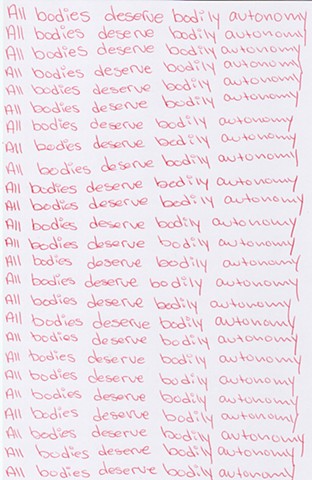 All bodies deserve bodily autonomy
All bodies deserve bodily autonomy
All bodies deserve bodily autonomy
All bodies deserve bodily autonomy
All bodies deserve bodily autonomy
All bodies deserve bodily autonomy
All bodies deserve bodily autonomy
All bodies deserve bodily autonomy
All bodies deserve bodily autonomy
All bodies deserve bodily autonomy
All bodies deserve bodily autonomy
All bodies deserve bodily autonomy
All bodies deserve bodily autonomy
All bodies deserve bodily autonomy
All bodies deserve bodily autonomy
All bodies deserve bodily autonomy
All bodies deserve bodily autonomy
All bodies deserve bodily autonomy
All bodies deserve bodily autonomy
All bodies deserve bodily autonomy
All bodies deserve bodily autonomy
All bodies deserve bodily autonomy
All bodies deserve bodily autonomy
All bodies deserve bodily autonomy
All bodies deserve bodily autonomy